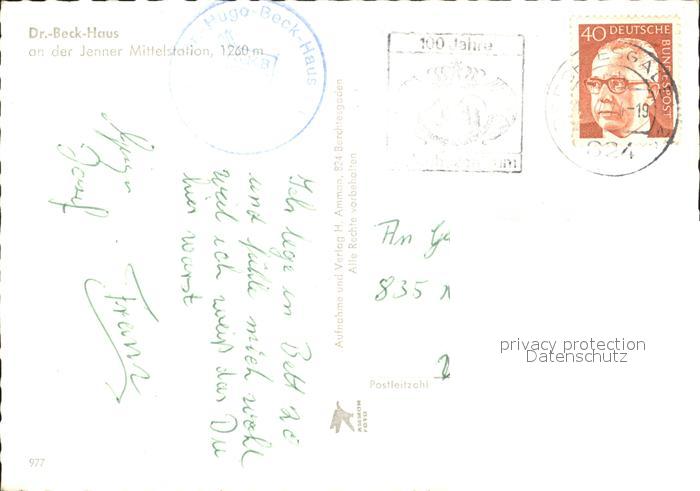 Dr.-Beck-Haus
an der Jenner Mittelstation, 1260 m
Hugo-Beck-Haus
100 Jahre
40 DEUTSCHE
BUNDESPOST
824
-19
Ich lege in Bett
und fühle mich wohl
weil ich weiß das Du
hier warst
Josef
Franz
Aufnahme und Verlag H. Ammon, 824 Berchtesgaden
Alle Rechte vorbehalten
An
835
Postleitzahl
AMMON
FOTO
977
privacy protection
Datenschutz